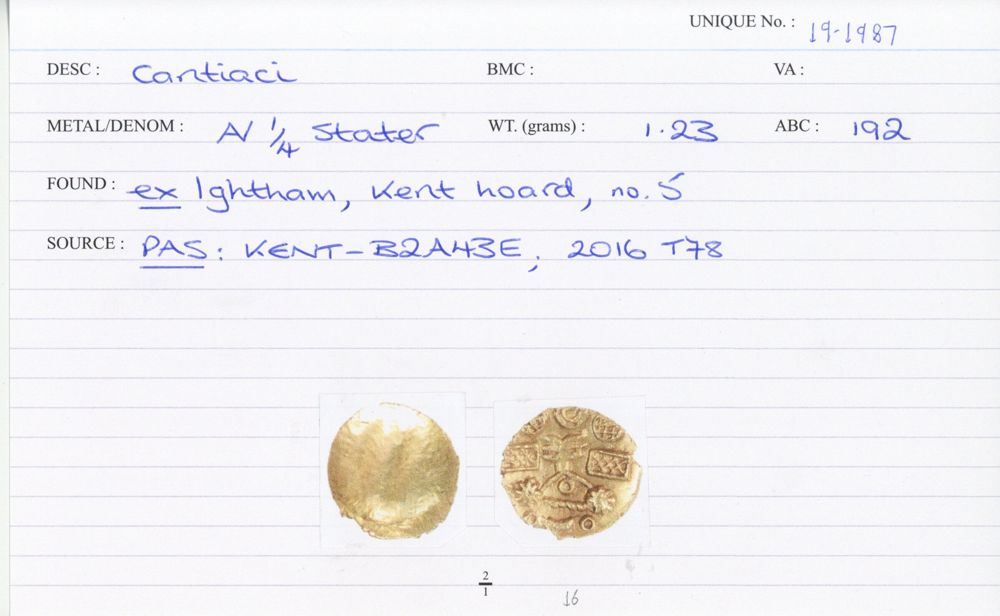 UNIQUE No. : 19-1987
DESC : Cantiaci BMC : VA :
METAL/DENOM : AV 1/4 Stater WT. (grams) : 1.23 ABC : 192
FOUND : ex Ightham, Kent hoard, no. 5
SOURCE : PAS: KENT-B2A43E, 2016 T78
2/1
16